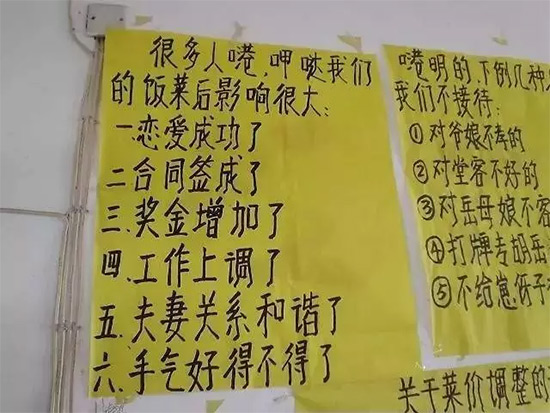 很多人嗧,呷哒我们
的饭菜后影响很大:
一恋爱成功了
二合同签成了
三.奖金增加了
四.工作上调了
五.夫妻关系和谐了
六.手气好得不得了
嗧明的,下例几种
我们不接待:
①对爷娘不孝的
②对堂客不好的
③对岳母娘不客
④打牌专胡岳
⑤不给崽伢子
关于菜价调整的